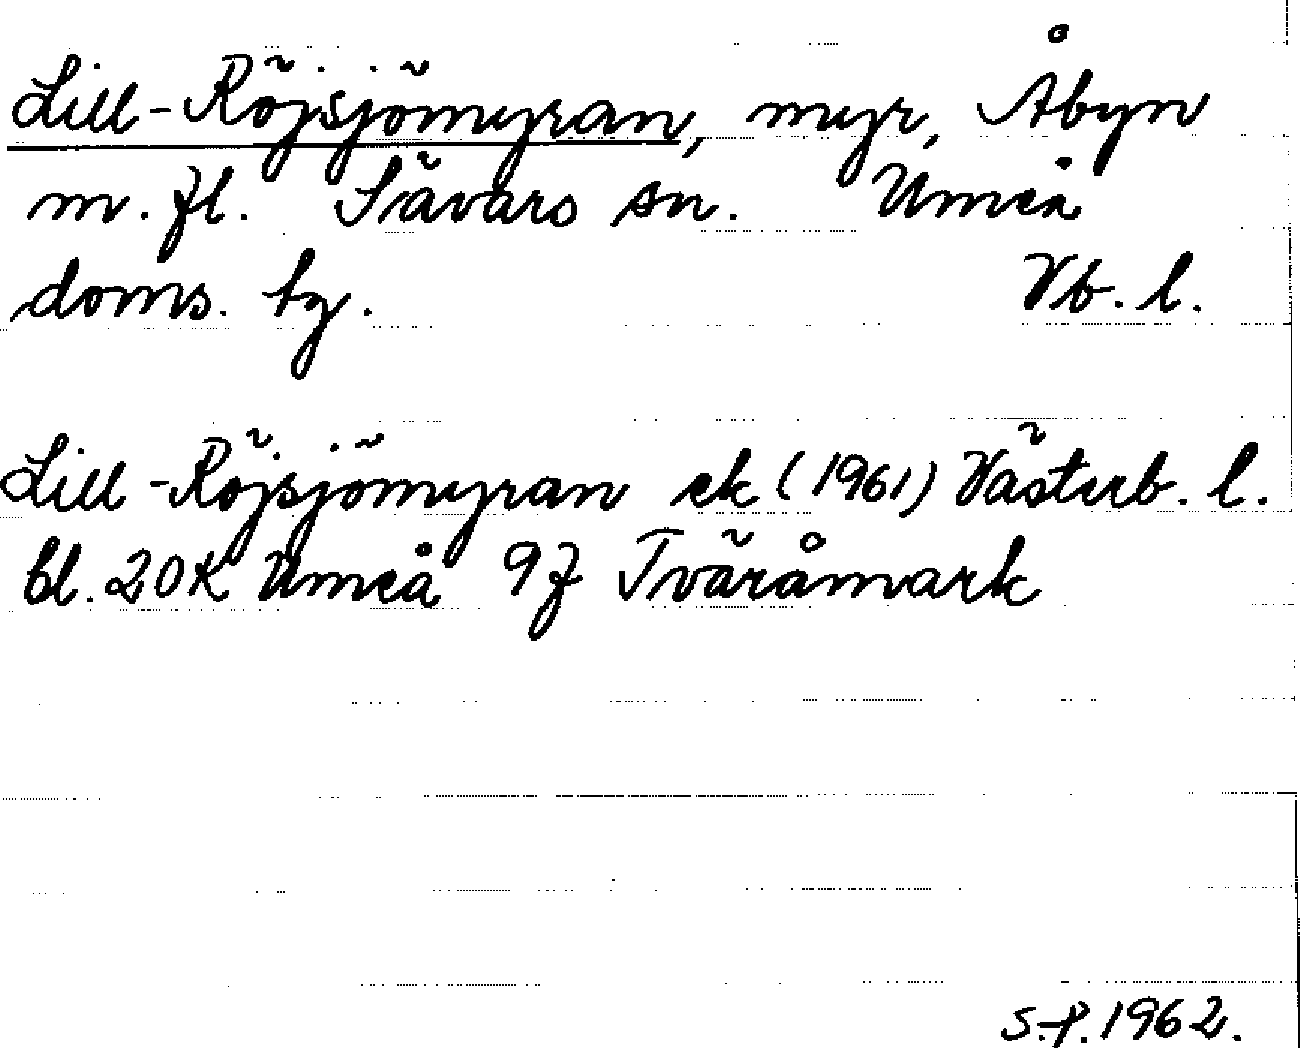 Lill-Röjsjömyran, myr, Åbyn
m. fl. Sävars sn. Umeå
doms. tg. Vb. l.
Lill-Röjsjömyran ek (1961) Västerb. l.
bl. 20K Umeå 9f Tväråmark
S.P. 1962.